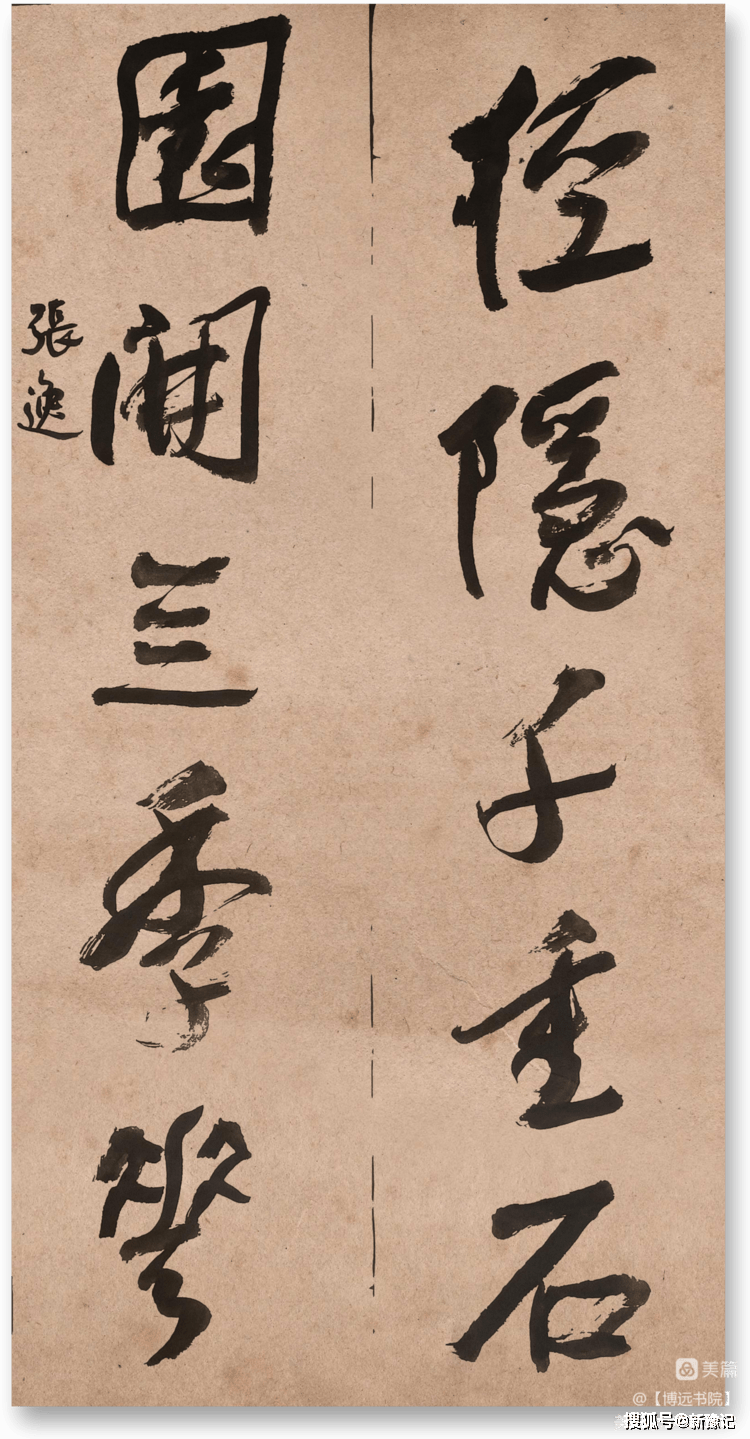 径隱千重石
園開三季
張逸
美篇
@【博远书院】
搜狐号@新豫记